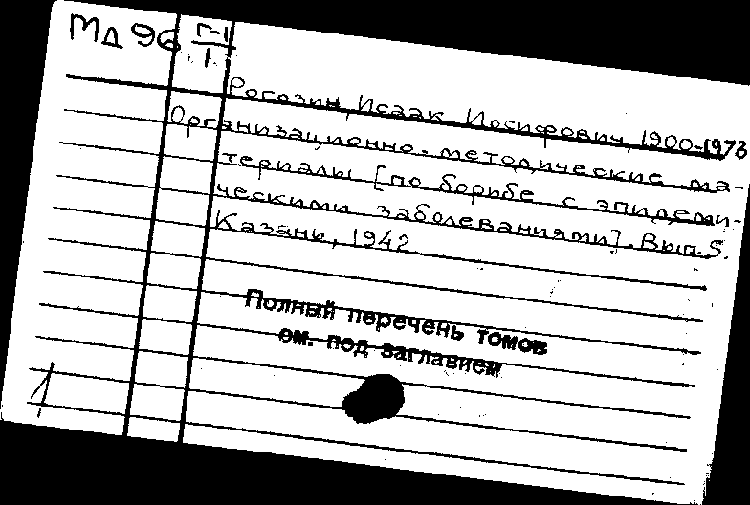 МД 96 Г-1/1
Рогозин, Исаак Иосифович, 1900-1973
Организационно-методические ма-
териалы [по борьбе с эпидеми-
ческими заболеваниями]. Вып. 5.
Казань, 1942
Полный перечень томов
см. под заглавием
1